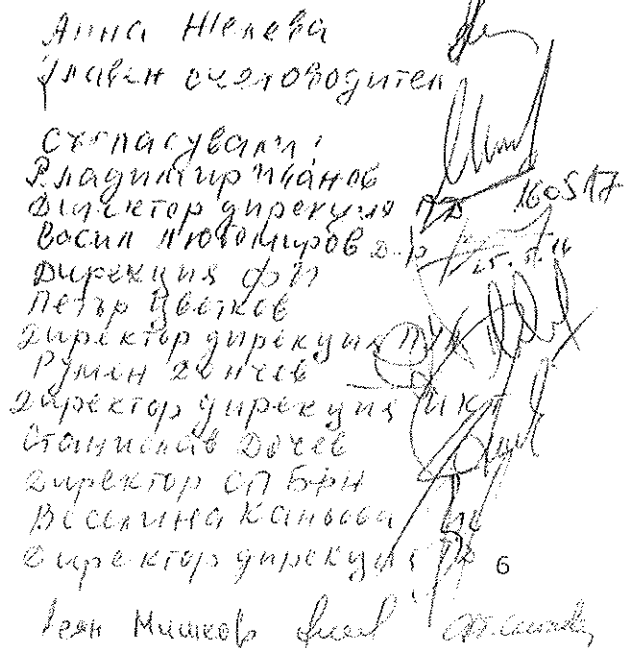 Анна Желева
Главен счетоводител
Съгласували:
Владимир Иванов
Директор дирекция ПД 160517
Васил Любомиров
Дирекция ФП
Петър Цветков
Директор дирекция
Румен Дончев
Директор дирекция ИКТ
Станислав Дочев
Директор ОП БФН
Веселина Каньова
Директор дирекция
6
Деян Мишков